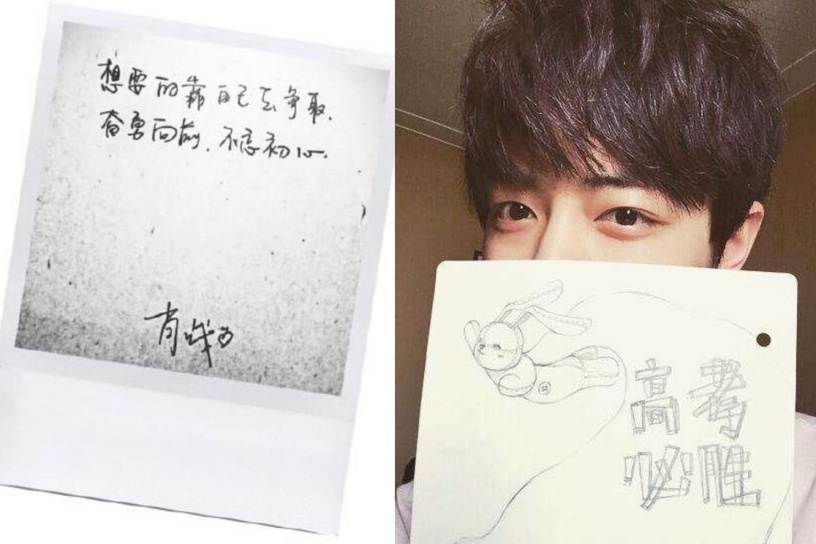 想要的靠自己去争取.
奋勇向前.不忘初心.
肖战
高考
必胜